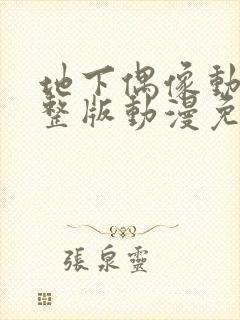 地下偶像動
整版動漫免
張泉靈